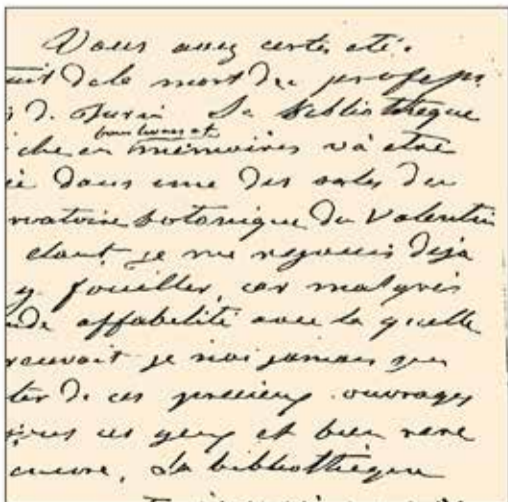 Vous avez certs. eté.
de la mort du profess.
d. Turin La Bibliothèque
bons livres et
che en mémoires và etre
dans une des sales du
rvatoire botanique du Valentin
dont je me rejouis deja
y fouiller, car malgrés
nde affabilité avec la quelle
recevait je n'ai jamais pu
ter d. ces precieux ouvrages
sous ses yeux et bien rare
encore. La bibliothèque